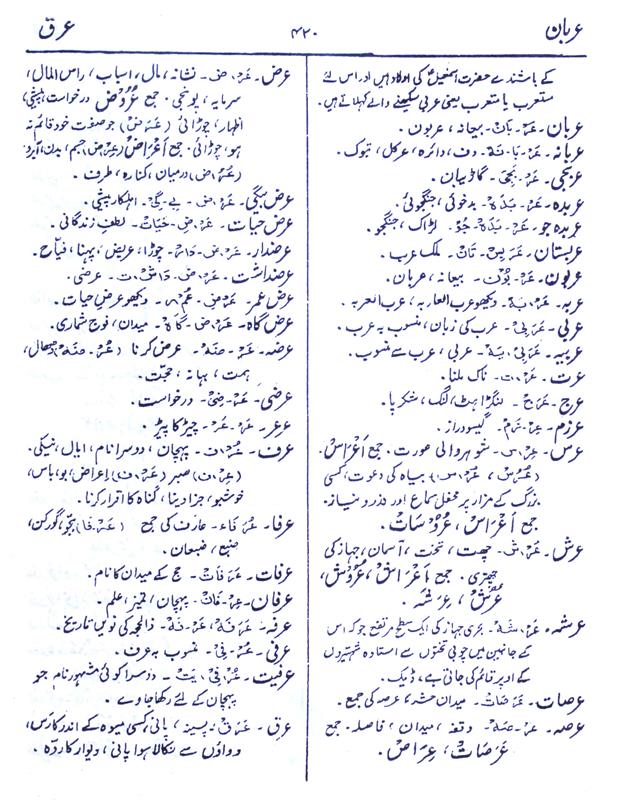 عربان
۴۲۰
عرق
کے باشندے حضرت اسمٰعیلؑ کی اولاد ہیں اور اس لئے
مستعرب یا متعرب یعنی عربی سیکھنے والے کہلاتے ہیں۔
عربان۔ عَرْ۔بَانْ۔ بیعانہ، عربون۔
عربانہ۔ عَرْ۔بَا۔نَہْ۔ دف، دائرہ، عرکل، تبوک۔
عربجی۔ عَرْ۔بَجِیْ۔ گاڑیبان۔
عربدہ۔ عَرْ۔بَدَہْ۔ بدخوئی، جنگجوئی۔
عربدہ جو۔ عَرْ۔بَدَہْ۔جُوْ۔ لڑاک، جنگجو۔
عربستان۔ عَرَبِسْ۔تَانْ۔ ملک عرب۔
عربون۔ عَرْ۔بُوْن۔ بیعانہ، عربان۔
عربہ۔ عَرْ۔بَہْ۔ دیکھو عرب العاربہ، عرب العربہ۔
عربی۔ عَرَبِیْ۔ عرب کی زبان، منسوب بہ عرب۔
عربیہ۔ عَرَبِیْ۔یَہْ۔ عربی، عرب سے منسوب۔
عرت۔ عَرْ۔ت۔ ناک ملنا۔
عرج۔ عَرَجْ۔ لنگڑاہٹ، لنگ، شکرپا۔
عرزم۔ عِرْ۔زَمْ۔ گیسودراز۔
عرس۔ عِرْ۔س۔ شوہر والی عورت۔ جمع اَعْرَاسْ۔
(عُرُسْ، عُرْ۔س) بیاہ کی دعوت، کسی
بزرگ کے مزار پر محفل سماع اور نذر و نیاز۔
جمع اَعْرَاسْ، عُرُوْسَاتْ۔
عرش۔ عَرْ۔ش۔ چھت، تخت، آسمان، جہاز کی
چھتری۔ جمع اَعْرَاشْ، عُرُوْشْ،
عُرُشْ، عِرَشَہْ۔
عرشہ۔ عَرْ۔شَہْ۔ بحری جہاز کی ایک سطح مرتفع جو کہ اس
کے جانبین میں چوبی تختوں سے استادہ شہتیروں
کے اوپر قائم کی جاتی ہے، ڈیک۔
عرصات۔ عَرَصَاتْ۔ میدان حشر، عرصہ کی جمع۔
عرصہ۔ عَرْ۔صَہْ۔ وقفہ، میدان، فاصلہ۔ جمع
عَرَصَاتْ، عِرَاصْ۔
عرض۔ عَرْ۔ض۔ نشانہ، مال، اسباب، راس المال،
سرمایہ، پونجی۔ جمع عُرُوْض درخواست، پیشی،
اظہار، چوڑائی (عَرَض) جو صفت خود قائم نہ
ہو، چوڑائی۔ جمع اَعْرَاضْ (عِرْ۔ض) جسم، بدن، آبرو
(عُرْ۔ض) درمیان، کنارہ، طرف۔
عرض بیگی۔ عَرْ۔ض۔بے۔گِیْ۔ اہلکار پیشی۔
عرض حیات۔ عَرْ۔ض۔حَیَاتْ۔ لطف زندگانی۔
عرضدار۔ عَرْ۔ض۔دَارْ۔ چوڑا، عریض، پہنا، فیاح۔
عرضداشت۔ عَرْ۔ض۔دَاشْ۔ت۔ عرضی۔
عرض عمر۔ عَرْ۔ض۔عُمْر۔ دیکھو عرض حیات۔
عرض گاہ۔ عَرْ۔ض۔گَاہْ۔ میدان، فوج شماری۔
عرضہ۔ عَرْ۔ضَہْ۔ عرض کرنا (عُرْ۔ضَہْ) ڈھال،
ہمت، بہانہ، حجت۔
عرضی۔ عَرْ۔ضِیْ۔ درخواست۔
عرعر۔ عَرْ۔عَرْ۔ چیڑ کا پیڑ۔
عرف۔ عُرْ۔ف۔ پہچان، دوسرا نام، ایال، نیکی۔
(عِرْ۔ف) صبر (عَرْ۔ف) اعراض، بو، باس،
خوشبو، جزا دینا، گناہ کا اقرار کرنا۔
عرفا۔ عُرَفَاء۔ عارف کی جمع (عَرْ۔فَا) بجّو، گورکن،
ضبع، ضبعان۔
عرفات۔ عَرَفَاتْ۔ حج کے میدان کا نام۔
عرفان۔ عِرْ۔فَانْ۔ پہچان، تمیز، علم۔
عرفہ۔ عَرَفَہْ، عَرْ۔فَہْ۔ ذالحجہ کی نویں تاریخ۔
عرفی۔ عُرْ۔فِیْ۔ منسوب بہ عرف۔
عرفیت۔ عُرْ۔فِیْ۔یَتْ۔ دوسرا کوئی مشہور نام جو
پہچان کے لئے رکھا جاوے۔
عرق۔ عَرَقْ۔ پسینہ، پانی، کسی میوہ کے اندر کا رس،
دواؤں سے نکالا ہوا پانی، دیوار کا ردّہ۔